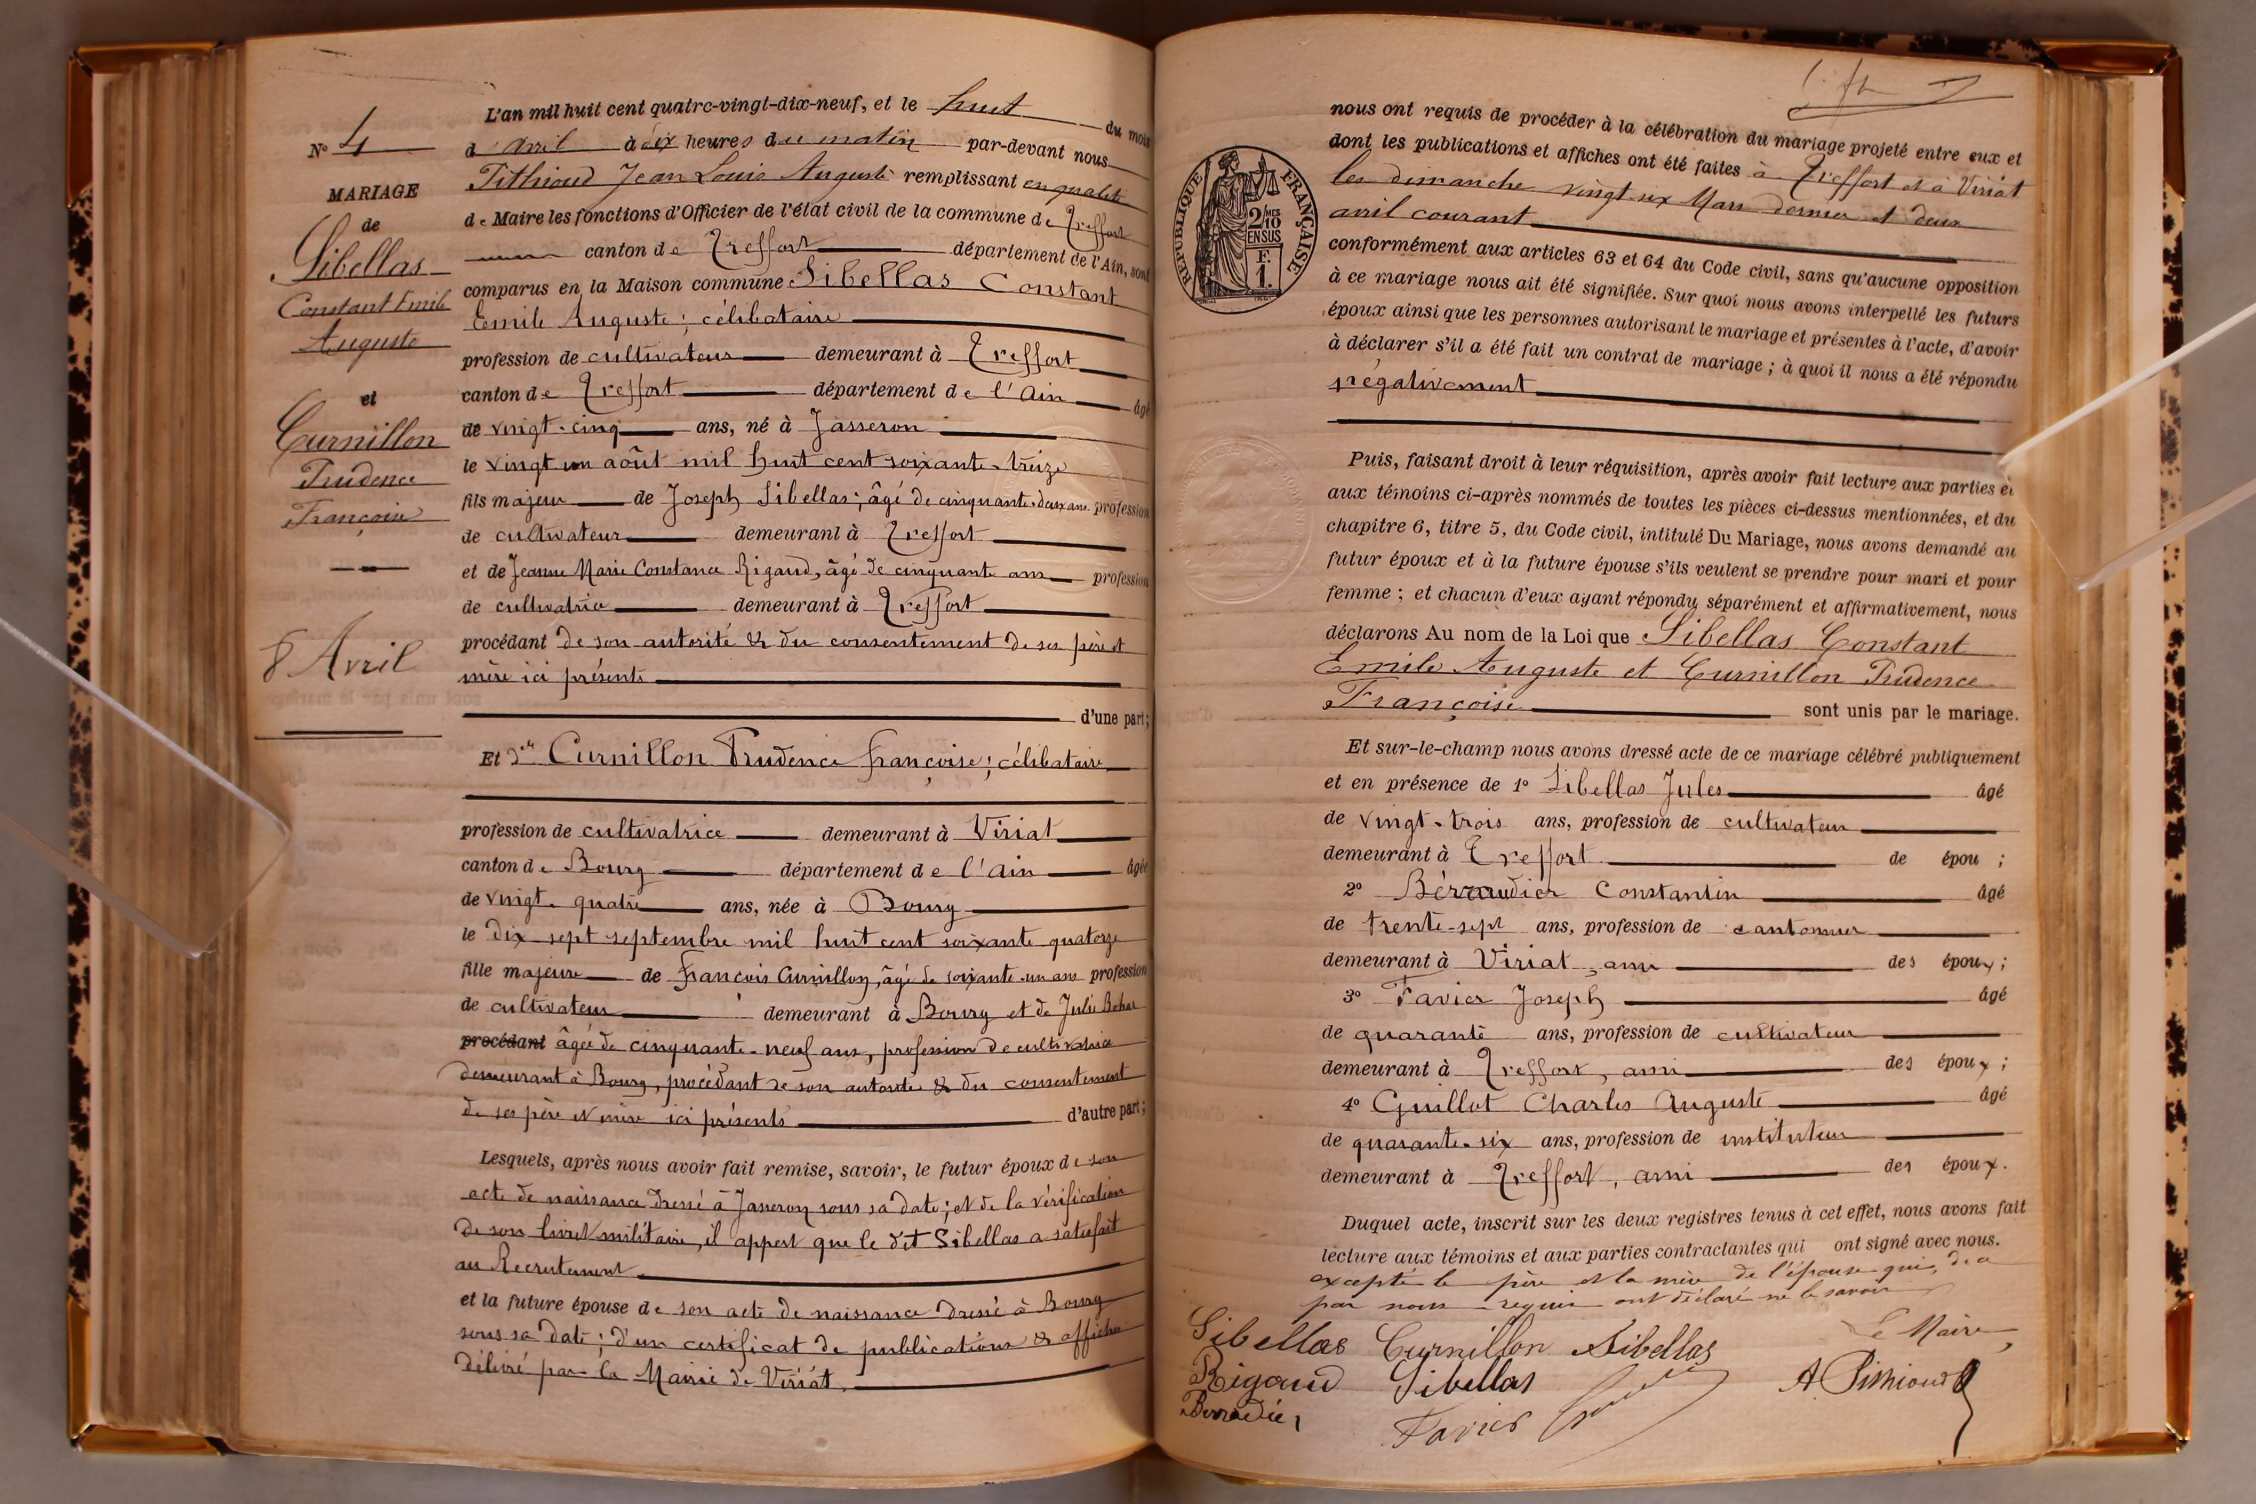 N° 4
MARIAGE
de
Sibellas
Constant Emile
Auguste
et
Curnillon
Prudence
Françoise
8 Avril
L'an mil huit cent quatre-vingt-dix-neuf, et le huit du mois
d'avril à dix heures du matin par-devant nous
Pithioud Jean Louis Auguste remplissant en qualité
de Maire les fonctions d'Officier de l'état civil de la commune de Treffort
canton de Treffort département de l'Ain, sont
comparus en la Maison commune Sibellas Constant
Emile Auguste; célibataire
profession de cultivateur demeurant à Treffort
canton de Treffort département de l'Ain âgé
de vingt-cinq ans, né à Jasseron
le vingt un août mil huit cent soixante-treize
fils majeur de Joseph Sibellas; âgé de cinquante-deux ans profession
de cultivateur demeurant à Treffort
et de Jeanne Marie Constance Rigaud, âgé de cinquante ans profession
de cultivatrice demeurant à Treffort
procédant de son autorité & du consentement de ses père et
mère ici présents
d'une part;
Et dlle Curnillon Prudence Françoise; célibataire
profession de cultivatrice demeurant à Viriat
canton de Bourg département de l'Ain âgée
de vingt-quatre ans, née à Bourg
le dix sept septembre mil huit cent soixante quatorze
fille majeure de François Curnillon, âgé de soixante-un ans profession
de cultivateur demeurant à Bourg et de Julie
procédant âgée de cinquante-neuf ans, profession de cultivatrice
demeurant à Bourg, procédant de son autorité & du consentement
de ses père et mère ici présents d'autre part;
Lesquels, après nous avoir fait remise, savoir, le futur époux de son
acte de naissance dressé à Jasseron sous sa date; et de la vérification
de son livret militaire, il appert que le dit Sibellas a satisfait
au Recrutement
et la future épouse de son acte de naissance dressé à Bourg
sous sa date; d'un certificat de publications & affiche
délivré par la Mairie de Viriat.
RÉPUBLIQUE FRANÇAISE
2/10 MES
EN SUS
F.
1.
nous ont requis de procéder à la célébration du mariage projeté entre eux et
dont les publications et affiches ont été faites à Treffort et à Viriat
les dimanche vingt-six Mars dernier et deux
avril courant
conformément aux articles 63 et 64 du Code civil, sans qu'aucune opposition
à ce mariage nous ait été signifiée. Sur quoi nous avons interpellé les futurs
époux ainsi que les personnes autorisant le mariage et présentes à l'acte, d'avoir
à déclarer s'il a été fait un contrat de mariage; à quoi il nous a été répondu
négativement
Puis, faisant droit à leur réquisition, après avoir fait lecture aux parties et
aux témoins ci-après nommés de toutes les pièces ci-dessus mentionnées, et du
chapitre 6, titre 5, du Code civil, intitulé Du Mariage, nous avons demandé au
futur époux et à la future épouse s'ils veulent se prendre pour mari et pour
femme; et chacun d'eux ayant répondu séparément et affirmativement, nous
déclarons Au nom de la Loi que Sibellas Constant
Emile Auguste et Curnillon Prudence
Françoise sont unis par le mariage.
Et sur-le-champ nous avons dressé acte de ce mariage célébré publiquement
et en présence de 1° Sibellas Jules âgé
de vingt-trois ans, profession de cultivateur
demeurant à Treffort de épou ;
2° Béraudier Constantin âgé
de trente-sept ans, profession de cantonnier
demeurant à Viriat, ami des époux;
3° Favier Joseph âgé
de quarante ans, profession de cultivateur
demeurant à Treffort, ami des époux;
4° Guillot Charles Auguste âgé
de quarante-six ans, profession de instituteur
demeurant à Treffort, ami des époux.
Duquel acte, inscrit sur les deux registres tenus à cet effet, nous avons fait
lecture aux témoins et aux parties contractantes qui ont signé avec nous.
excepté le père et la mère de l'épouse qui, de ce
par nous requis ont déclaré ne le savoir
Sibellas Curnillon Sibellas Le Maire,
Rigaud Sibellas A Pithioud
Béraudier Favier